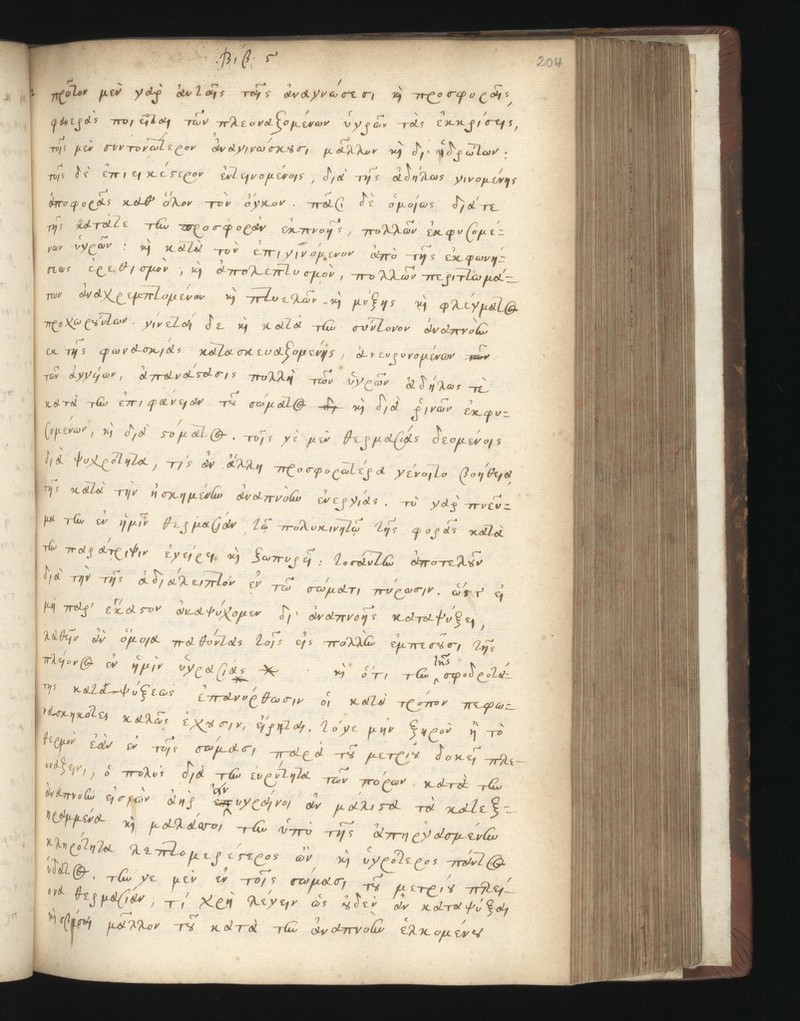 Βιβ. ς 204
πρῶτον μὲν γὰρ ἀυταῖς ταῖς ἀναγνώσεσι κὶ προσφοραῖς,
φανερὰς ποιεῖται τῶν πλεοναζομένων ὑγρῶν τὰς ἐκκρίσεις,
τοῖς μὲν συντονώτερον ἀναγινώσκουσι μᾶλλον κὶ δι' ἱδρώτων:
τοῖς δὲ ἐπιεικέστερον ἐντεινομένοις, διὰ τῆς ἀδήλως γινομένης
ἀποφορᾶς καθ' ὅλον τὸν ὄγκον. πᾶσι δὲ ὁμοίως διά τε
τῆς κατά τε τὴν προσφορὰν ἐκπνοῆς, πολλῶν ἐκφυζομέ-
νων ὑγρῶν: κὶ κατὰ τὸν ἐπιγινόμενον ἀπὸ τῆς ἐκφωνή-
σεως ἐρεθισμὸν, κὶ ἀπολεπτυσμὸν, πολλῶν περιττωμά-
των ἀναχρεμπτομένων κὶ πτυέλων κὶ μύξης κὶ φλέγματος
προχωρούντων. γίνεται δὲ κὶ κατὰ τὴν σύντονον ἀναπνοὴν
ἐκ τῆς φωνασκίας κατασκευαζομένης, ἀνευρυνομένων
τῶν ἀγγείων, ἀπανάστασις πολλὴ τῶν ὑγρῶν ἀδήλως τὲ
κατὰ τὴν ἐπιφάνειαν τοῦ σώματος κὶ διὰ ῥινῶν ἐκφυ-
ζομένων, κὶ διὰ στόματος. τοῖς γὲ μὲν θερμασίας δεομένοις
διὰ ψυχρότητα, τίς ἂν ἄλλη προσφορωτέρα γένοιτο βοήθεια,
τῆς κατὰ τὴν ἠσκημένην ἀναπνοὴν ἐνεργίας. τὸ γὰρ πνεῦ-
μα τὴν ἐν ἡμῖν θερμασίαν τῷ πολυκινητῷ τῆς φορᾶς κατὰ
τὴν παράτριψιν ἐγείρει κὶ ζωπυρεῖ: τοσαύτην ἀποτελοῦν
διὰ τὴν τῆς ἀδιάλειπτον ἐν τῷ σώματι πύρωσιν. ὥστ' εἰ
μὴ παρ' ἕκαστον ἀναψύχομεν δι' ἀναπνοῆς καταψύξει,
λαθεῖν ἂν ὅμοια παθόντας τοῖς εἰς πολλὴν ἐμπεσοῦσι τῆς
πλείονος ἐν ἡμῖν ὑγρασίας κὶ ὅτι τὴν τῆς σφοδροτά-
της καταψύξεως ἐπανόρθωσιν οἱ κατὰ τρόπον πεφω-
νασκηκότες καλῶς ἔχουσιν, εἴρηται. τό γε μὴν ξηρὸν ἢ τὸ
θερμὸν ἐὰν ἐν τοῖς σώμασι παρὰ τοῦ μετρίου δοκεῖ πλε-
ονάζειν, ὁ πολὺς διὰ τὴν εὐρύτητα τῶν πόρων κατὰ τὴν
ἀναπνοὴν εἰσιὼν ἀὴρ ἀνυγραίνοι ἂν μάλιστα τὰ κατεξ-
ηραμμένα κὶ μαλάττοι τὴν ὑπὸ τῆς ἀπηργασμένην
σκληρότητα λεπτομερέστερος ὢν κὶ ὑγρότερος παντὸς
ὕδατος. τὴν γε μὲν ἐν τοῖς σώμασι τοῦ μετρίου πλεί-
ονα θερμασίαν, τί χρὴ λέγειν ὡς οὐδὲν ἂν καταψύξαι
κὶ σβέσαι μᾶλλον τοῦ κατὰ τὴν ἀναπνοὴν ἑλκομένου